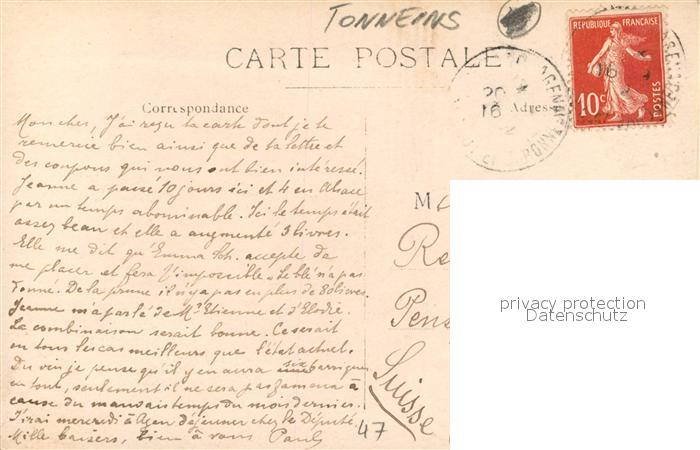 TONNEINS
CARTE POSTALE
REPUBLIQUE FRANÇAISE
10c
POSTES
Correspondance
Adresse
Mon cher, J'ai reçu ta carte dont je te
remercie bien ainsi que de ta lettre et
des coupons qui nous ont bien intéressé.
Jeanne a passé 10 jours ici et 4 en Alsace
par un temps abominable. Ici le temps était
assez beau et elle a augmenté 3 livres.
Elle me dit qu'Emma Sch. accepte de
me placer et fera l'impossible. Le blé n'a pas
donné. De la prune il n'y a pas en plus de 80 livres.
Jeanne m'a parlé de Mr Etienne et d'Elodie.
La combinaison serait bonne. Ce serait
en tous les cas meilleurs que l'état actuel.
Du vin je pense qu'il y en aura six barriques
en tout, seulement il ne sera pas fameux à
cause du mauvais temps du mois dernier.
J'irai mercredi à Agen déjeuner chez le Député.
Mille baisers, bien à vous Paul
M
Re
Pens
Suisse
47
privacy protection
Datenschutz